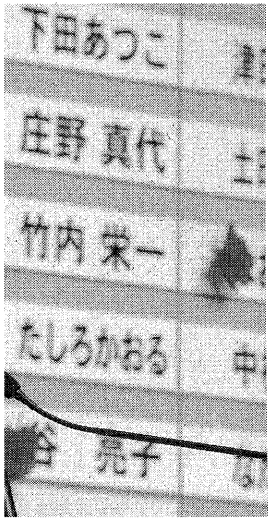 下田あつこ
庄野 真代
竹内 栄一
たしろかおる 中
谷 亮子